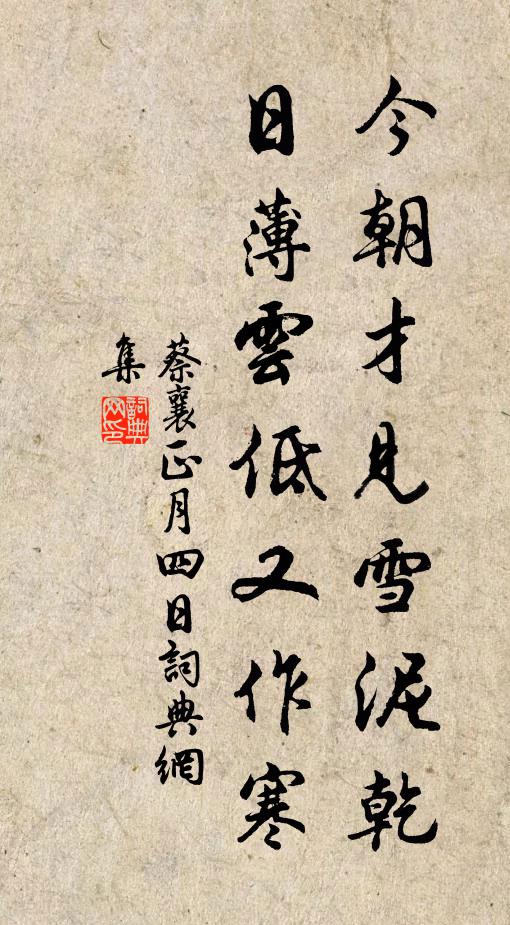 今朝才見雪泥乾
日薄雲低又作寒
蔡襄正月四日詞典網
集
詞典
网印